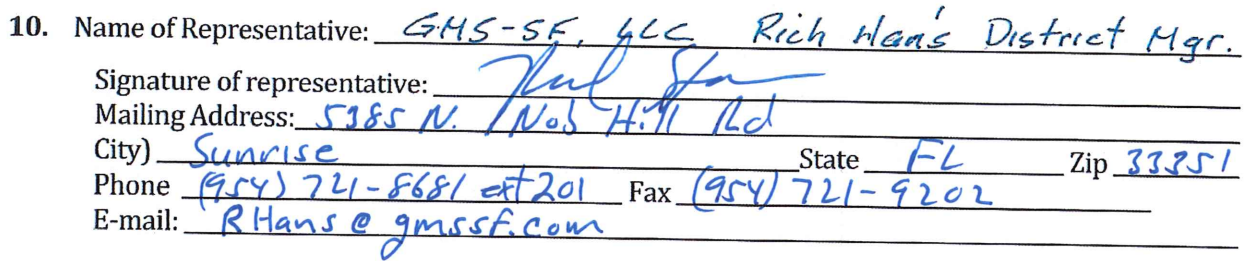 10. Name of Representative: GMS-SF, LLC Rich Hans District Mgr.
Signature of representative:
Mailing Address: 5385 N. Nob Hill Rd
City) Sunrise State FL Zip 33351
Phone (954) 721-8681 ext 201 Fax (954) 721-9202
E-mail: RHans@gmssf.com